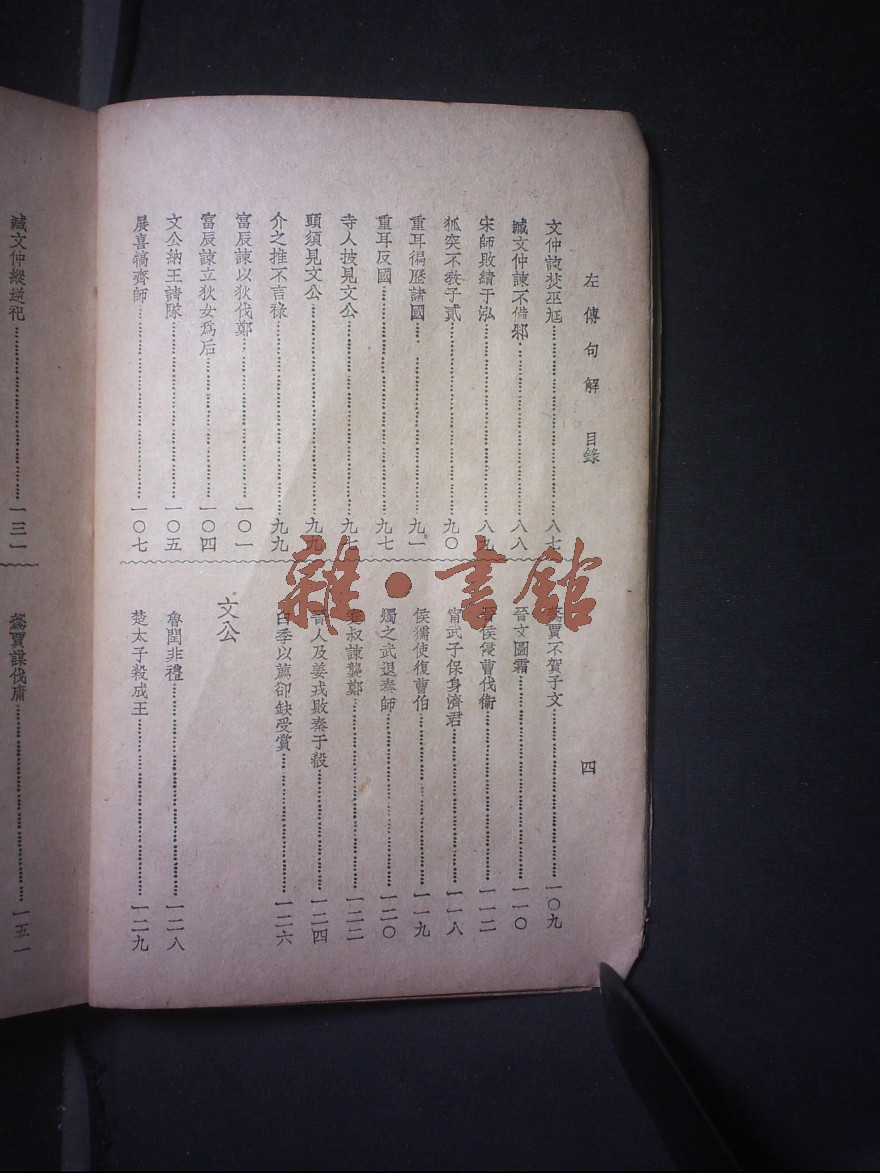 左傳句解 目錄 四
文仲諫焚巫尪 八七
臧文仲諫不備邾 八八
宋師敗績于泓 八九
狐突不教子貳 九〇
重耳徧歷諸國 九一
重耳反國 九七
寺人披見文公 九七
頭須見文公 九九
介之推不言祿 九九
富辰諫以狄伐鄭 一〇一
富辰諫立狄女為后 一〇四
文公納王請隊 一〇五
展喜犒齊師 一〇七
蒍賈不賀子文 一〇九
晉文圖霸 一一〇
晉侯侵曹伐衞 一一二
甯武子保身濟君 一一八
侯獳使復曹伯 一一九
燭之武退秦師 一二〇
蹇叔諫襲鄭 一二二
晉人及姜戎敗秦于殽 一二四
臼季以薦卻缺受賞 一二六
文公
魯閏非禮 一二八
楚太子殺成王 一二九
臧文仲縱逆祀 一三一
蒍賈謀伐庸 一五一
雜·書館